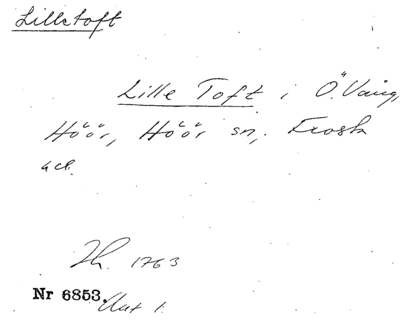 Lillstoft
Lille Toft i Ö. Vång,
Höör, Höör sn, Frosta
hd.
Lh. 1763
Nr 6853. Akt 1.